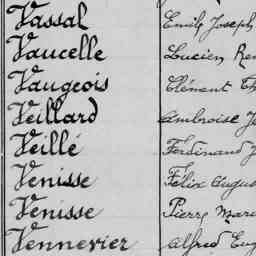 Vassal Emile Joseph
Vaucelle Lucien
Vaugeois Clément
Veillard Ambroise
Veillé Ferdinand
Venisse Félix
Venisse Pierre
Vennevier Alfred